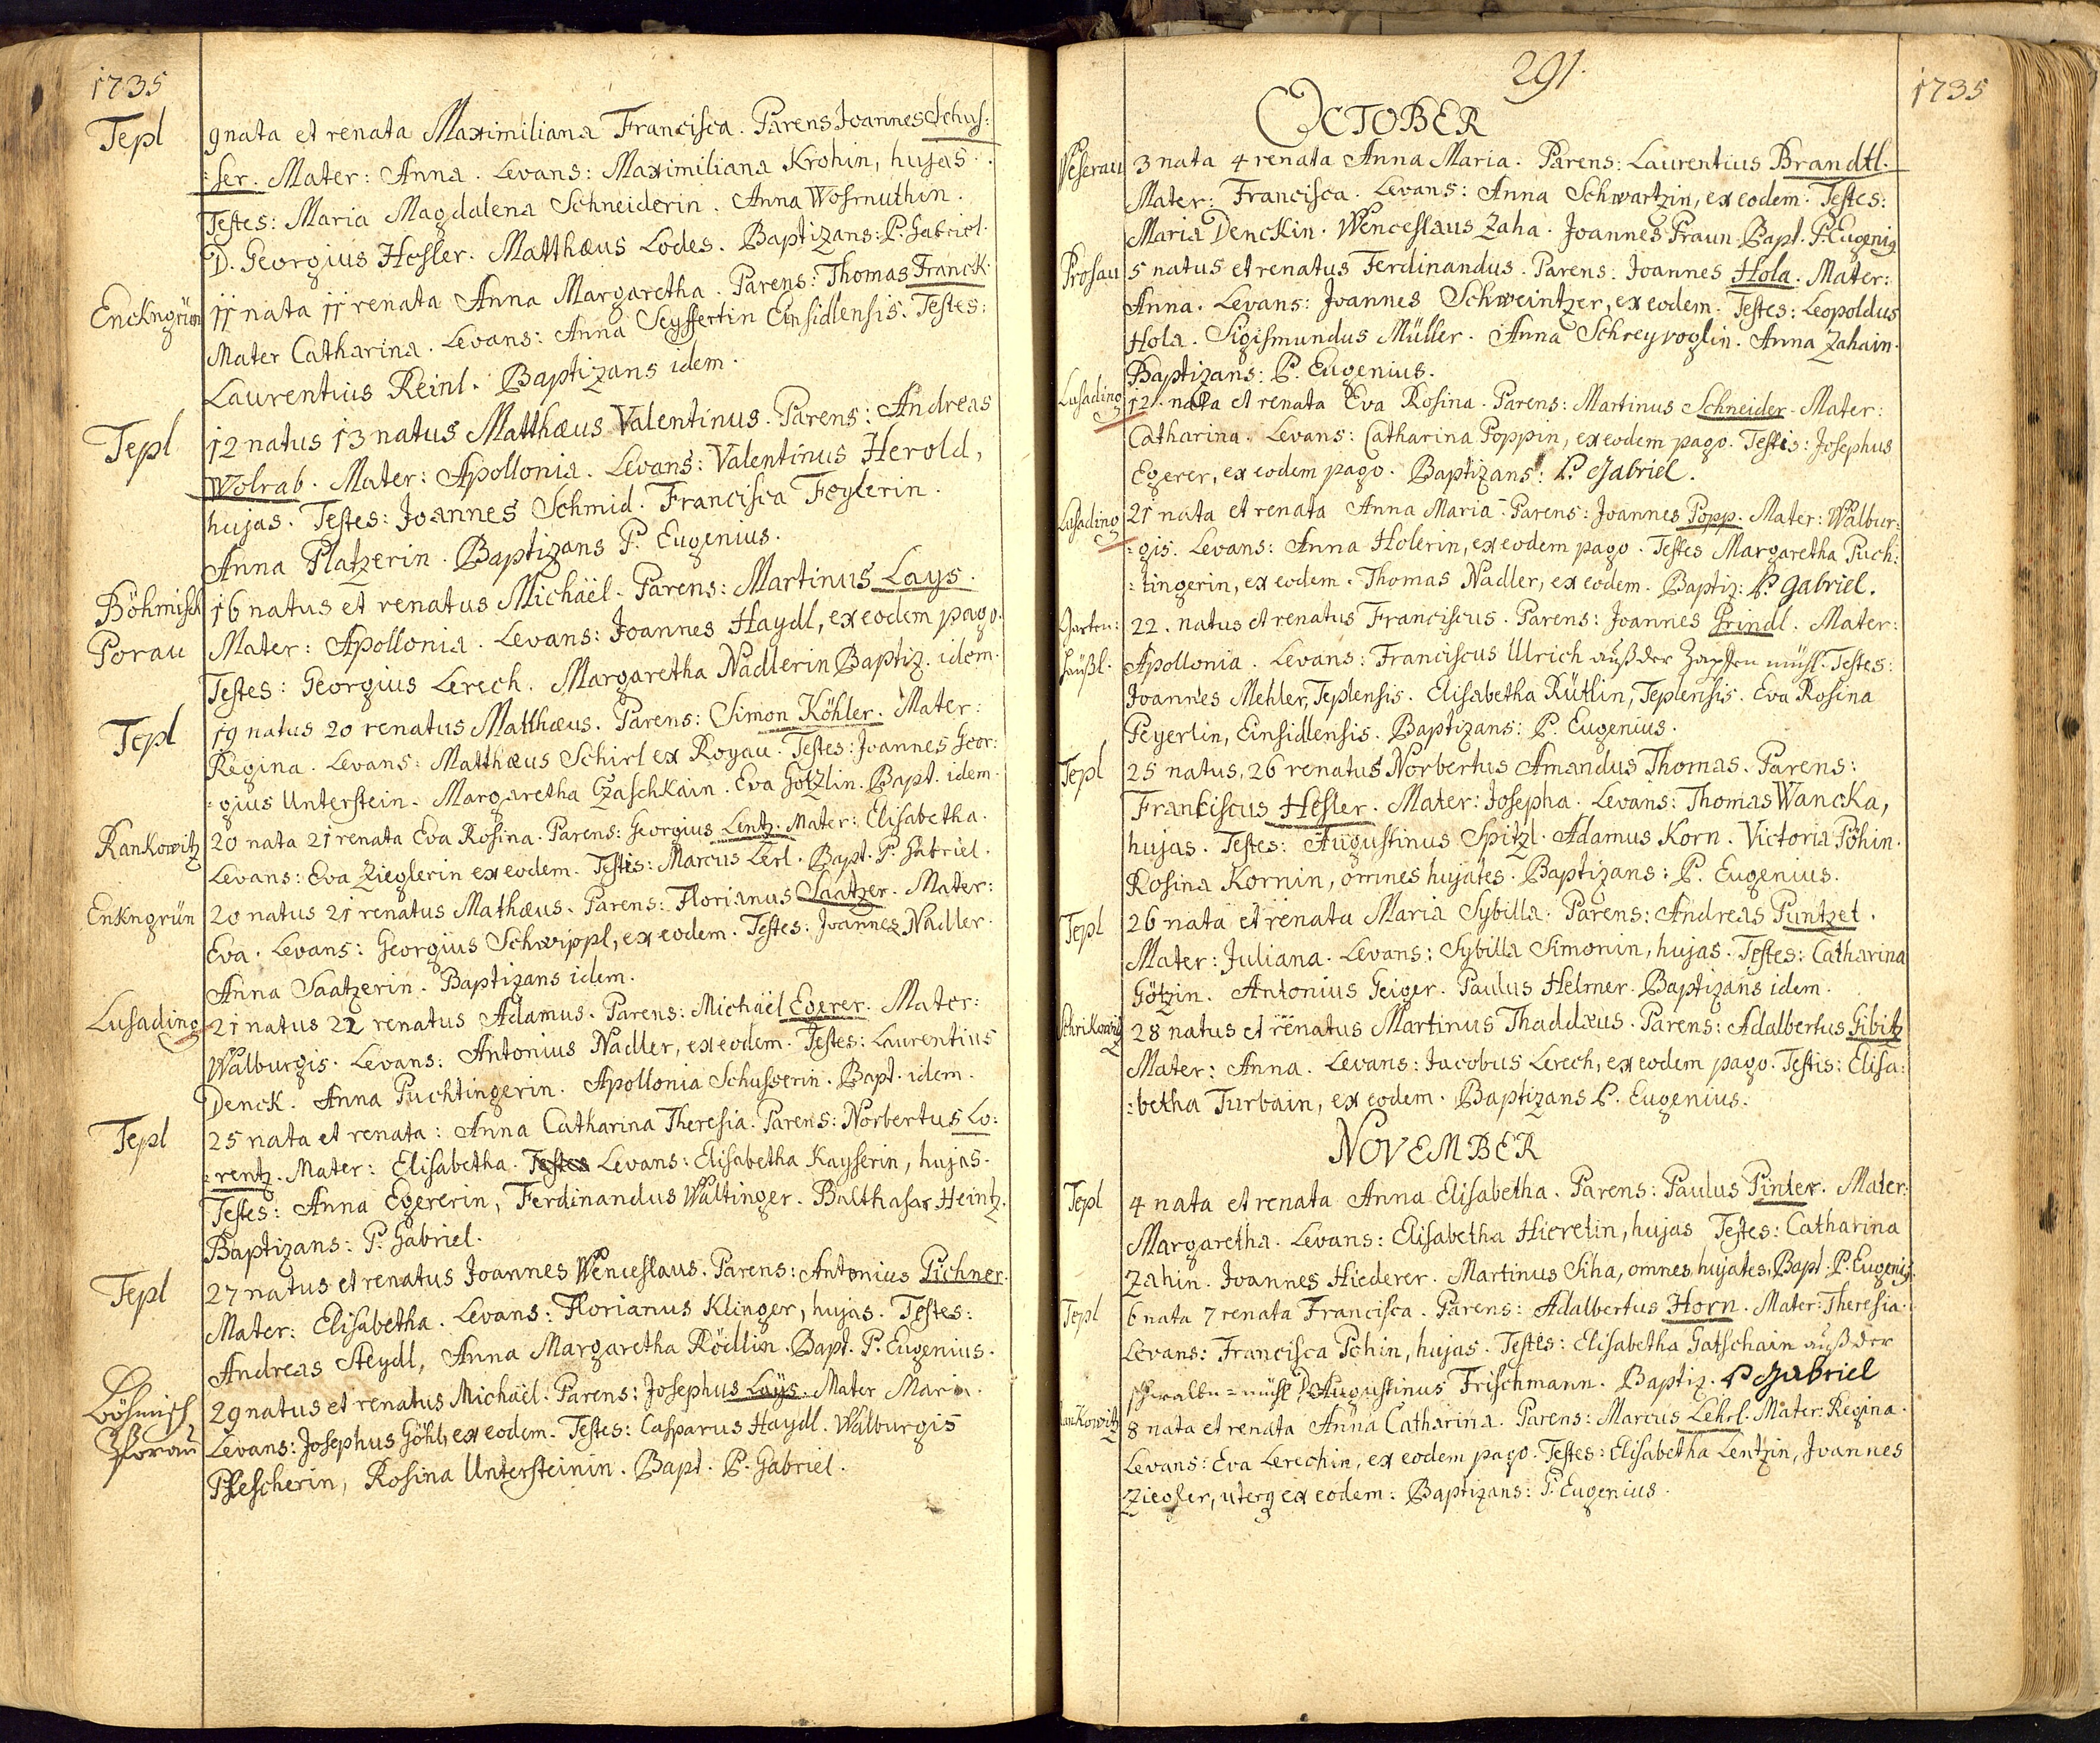 1735
Tepl
9 nata et renata Maximiliana Francisca. Parens Joannes Schus:
:ser. Mater: Anna. Levans: Maximiliana Krohin, hujas.
Testes: Maria Magdalena Schneiderin. Anna Wosrnuthin.
D. Georgius Hesler. Matthæus Lodes. Baptizans: P. Gabriel.
Enckngrün
11 nata 11 renata Anna Margaretha. Parens: Thomas Franck.
Mater Catharina. Levans: Anna Seyffertin Einsidlensis. Testes:
Laurentius Reinl. Baptizans idem.
Tepl
12 natus 13 natus Matthæus Valentinus. Parens: Andreas
Wolrab. Mater: Apollonia. Levans: Valentinus Herold,
hujas. Testes: Joannes Schmid. Francisca Foglerin.
Anna Platzerin. Baptizans P. Eugenius.
Böhmisch
Porau
16 natus et renatus Michäel. Parens: Martinus Lays.
Mater: Apollonia. Levans: Joannes Haydl, ex eodem pago.
Testes: Georgius Lerech. Margaretha Nadlerin Baptiz. idem.
Tepl
19 natus 20 renatus Matthæus. Parens: Simon Köhler. Mater:
Regina. Levans: Matthæus Schirl ex Royau. Testes: Joannes Geor:
:gius Unterstein. Margaretha Czaschkain. Eva Götzlin. Bapt. idem.
Rankowitz
20 nata 21 renata Eva Rosina. Parens: Georgius Lentz. Mater: Elisabetha.
Levans: Eva Zieglerin ex eodem. Testis: Marcus Lerl. Bapt. P. Gabriel.
Enkngrün
20 natus 21 renatus Mathæus. Parens: Florianus Saatzer. Mater:
Eva. Levans: Georgius Schwippl, ex eodem. Testes: Joannes Nadler.
Anna Saatzerin. Baptizans idem.
Lusading
21 natus 22 renatus Adamus. Parens: Michäel Egerer. Mater:
Walburgis. Levans: Antonius Nadler, ex eodem. Testes: Laurentius
Denck. Anna Puchtingerin. Apollonia Schusserin. Bapt. idem.
Tepl
25 nata et renata: Anna Catharina Theresia. Parens: Norbertus Lo:
:rentz. Mater: Elisabetha. Testes Levans: Elisabetha Kayserin, hujas.
Testes: Anna Egererin, Ferdinandus Waltinger. Balthasar Heintz.
Baptizans: P. Gabriel.
Tepl
27 natus et renatus Joannes Wenceslaus. Parens: Antonius Pichner.
Mater: Elisabetha. Levans: Florianus Klinger, hujas. Testes:
Andreas Steydl, Anna Margaretha Rödlin. Bapt. P. Eugenius.
Böhmisch
Porau
29 natus et renatus Michäel. Parens: Josephus Lays. Mater Maria.
Levans: Josephus Göhl, ex eodem. Testes: Casparus Haydl. Walburgis
Plescherin, Rosina Untersteinin. Bapt. P. Gabriel.
291.
1735
OCTOBER
Weserau
3 nata 4 renata Anna Maria. Parens: Laurentius Brandtl.
Mater: Francisca. Levans: Anna Schwartzin, ex eodem. Testes:
Maria Denckin. Wenceslaus Zaha. Joannes Praun. Bapt. P. Eugenig
Prosau
5 natus et renatus Ferdinandus. Parens: Joannes Hola. Mater:
Anna. Levans: Joannes Schweintzer, ex eodem. Testes: Leopoldus
Hola. Sigismundus Müller. Anna Schreyvoglin. Anna Zahain.
Baptizans: P. Eugenius.
Lusading
12. nata et renata Eva Rosina. Parens: Martinus Schneider. Mater:
Catharina. Levans: Catharina Poppin, ex eodem pago. Testis: Josephus
Egerer, ex eodem pago. Baptizans: P. Gabriel.
Lusading
21 nata et renata Anna Maria. Parens: Joannes Popp. Mater: Walbur:
:gis. Levans: Anna Holerin, ex eodem pago. Testes Margaretha Puch:
:tingerin, ex eodem. Thomas Nadler, ex eodem. Baptiz: P. Gabriel.
Garten:
häußl.
22. natus et renatus Franciscus. Parens: Joannes Grindl. Mater:
Apollonia. Levans: Franciscus Ulrich auß der Zapfen mühl. Testes:
Joannes Mehler, Teplensis. Elisabetha Rütlin, Teplensis. Eva Rosina
Peyerlin, Einsidlensis. Baptizans: P. Eugenius.
Tepl
25 natus, 26 renatus Norbertus Amandus Thomas. Parens:
Franciscus Hesler. Mater: Josepha. Levans: Thomas Wancka,
hujas. Testes: Augustinus Spitzl. Adamus Korn. Victoria Pöhin.
Rosina Kornin, omnes hujates. Baptizans: P. Eugenius.
Tepl
26 nata et renata Maria Sybilla. Parens: Andreas Puntzet.
Mater: Juliana. Levans: Sybilla Simonin, hujas. Testes: Catharina
Götzin. Antonius Geiger. Paulus Helmer. Baptizans idem.
Schrikowitz
28 natus et renatus Martinus Thaddæus. Parens: Adalbertus Gibitz
Mater: Anna. Levans: Jacobus Lerech, ex eodem pago. Testis: Elisa:
:betha Turbain, ex eodem. Baptizans P. Eugenius.
NOVEMBER
Tepl
4 nata et renata Anna Elisabetha. Parens: Paulus Pinter. Mater:
Margaretha. Levans: Elisabetha Hieretin, hujas Testes: Catharina
Zahin. Joannes Hiederer. Martinus Siha, omnes hujates. Bapt. P. Eugenig.
Tepl
6 nata 7 renata Francisca. Parens: Adalbertus Horn. Mater: Theresia.
Levans: Francisca Pöhin, hujas. Testes: Elisabetha Gatschain auß der
schwalbn=mühl D. Augustinus Frischmann. Baptiz. P Gabriel
Rankowitz
8 nata et renata Anna Catharina. Parens: Marcus Lehrl. Mater: Regina.
Levans: Eva Lerechin, ex eodem pago. Testes: Elisabetha Lentzin, Joannes
Ziegler, uterq ex eodem: Baptizans: P. Eugenius.